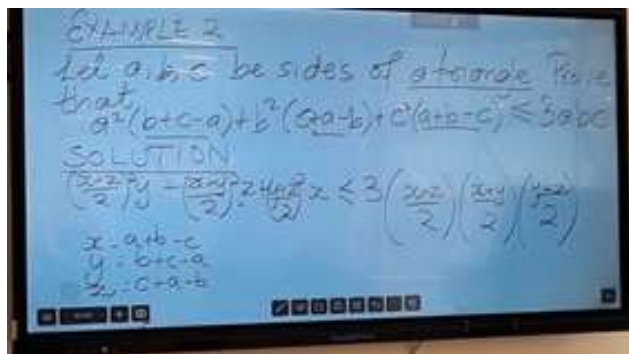 EXAMPLE 2
Let a,b,c be sides of a triangle Prove
that
a²(b+c-a)+b²(c+a-b)+c²(a+b-c) ≤ 3abc
SOLUTION
≤ 3(x+z/2)(x+y/2)(y+z/2)
x = a+b-c
y = b+c-a
z = c+a-b